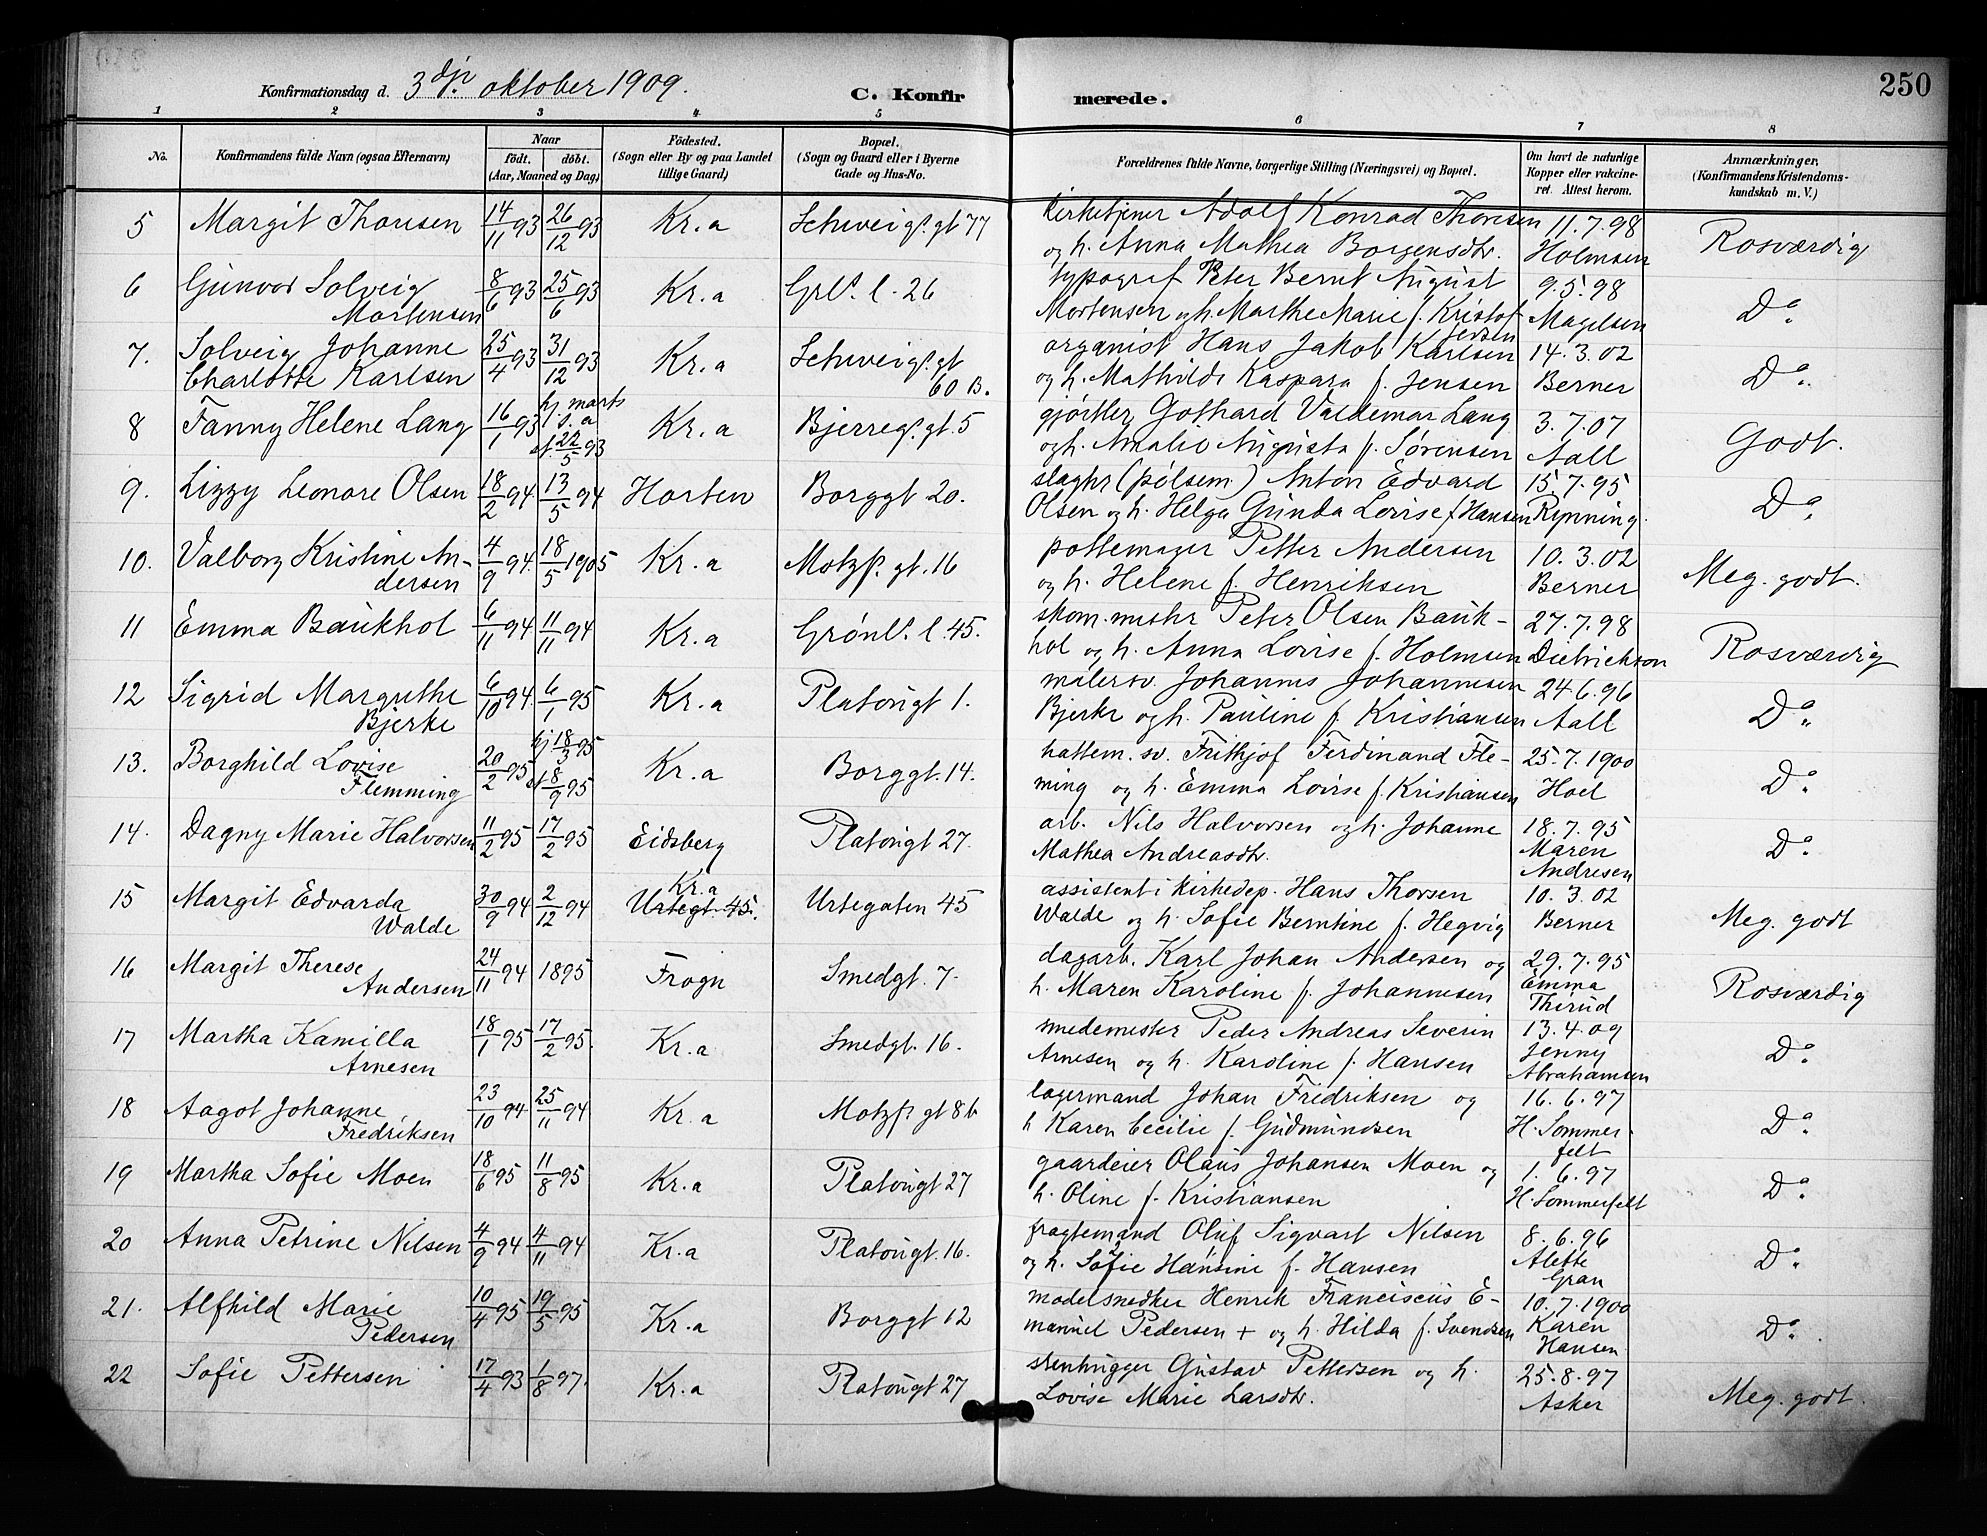 250
Konfirmationsdag d. 3dje oktober 1909.
C. Konfirmerede.
1 2 3 4 5 6 7 8
No. Konfirmandens fulde Navn (ogsaa Efternavn) Naar født. døbt. (Aar, Maaned og Dag) Fødested. (Sogn eller By og paa Landet tillige Gaard) Bopæl. (Sogn og Gaard eller i Byerne Gade og Hus-No. Forældrenes fulde Navne, borgerlige Stilling (Næringsvei) og Bopæl. Om havt de naturlige Kopper eller vakcineret. Attest herom. Anmærkninger, (Konfirmandens Kristendomskundskab m. V.)
5 Margit Thoresen 14/11 93 26/12 93 Kr.a Schweigs. gt 77 kirketjener Adolf Konrad Thoresen 11.7.98 Rosværdig
og h. Anna Mathea Borgensdtr. Holmsen
6 Gunvor Solveig 8/6 93 25/6 93 Kr.a Grls. l. 26 typograf Peter Bernt August 9.5.98 Do.
Mortensen Mortensen og h. Marthe Marie f. Kristofersen Magelsen
7. Solveig Johanne 25/4 93 31/12 93 Kr.a Schweigs. gt organist Hans Jakob Karlsen 14.3.02 Do.
Charlotte Karlsen 60 B. og h. Mathilde Kaspara f. Jensen Berner
8 Fanny Helene Lang 16/1 93 hj marts s. a st. 22/5 93 Kr.a Bjerregs. gt. 5 gjørtler Gothard Valdemar Lang 3.7.07 Godt.
og h. Amalie Augusta f. Sørensen Aall
9. Lizzy Leonore Olsen 18/2 94 13/5 94 Horten Borggt 20. slagtr (pølsem.) Anton Edvard 15.7.95 Do.
Olsen og h. Helga Gunda Lovise f Hansen Rynning.
10. Valborg Kristine An- 4/9 94 18/5 1905 Kr.a Motzf. gt. 16 pottemager Petter Andersen 10.3.02 Meg. godt.
dersen og h. Helene f. Henriksen Berner
11 Emma Baukhol 6/11 94 11/11 94 Kr.a Grønls. l. 45. skom.mestr Peter Olsen Bauk- 27.7.98 Rosværdig
hol og h. Anna Lovise f. Holmsen Dietrichson
12 Sigrid Margrethe 6/10 94 6/1 95 Kr.a Platougt 1. malersv. Johannes Johannesen 24.6.96 Do.
Bjerke Bjerke og h. Pauline f. Kristiansen Aall
13. Borghild Lovise 20/2 95 hj 18/3 95 st 8/9 95 Kr.a Borggt. 14. hattem. sv. Frithjof Ferdinand Fle- 25.7.1900 Do.
Flemming ming og h. Emma Lovise f. Kristiansen Hoel
14. Dagny Marie Halvorsen 11/2 95 17/2 95 Eidsberg Platougt 27. arb. Nils Halvorsen og h. Johanne 18.7.95 Do.
Mathea Andreasdtr. Maren
Andresen
15 Margit Edvarda 30/9 94 2/12 94 Kr.a Urtegt. 45. Urtegaten 45 assistent i kirkedep. Hans Thorsen 10.3.02 Meg. godt
Walde Walde og h. Sofie Berntine f. Hegvig Berner
16 Margit Therese 24/11 94 1895 Frogn Smedgt. 7. dagarb. Karl Johan Andersen og 29.7.95 Rosværdig
Andersen h. Maren Karoline f. Johannesen Emma
Thirud
17 Martha Kamilla 18/1 95 17/2 95. Kr.a Smedgt. 16. smedemester Peder Andreas Severin 13.4.09 Do.
Arnesen Arnesen og h. Karoline f. Hansen Jenny
Abrahamsen
18 Aagot Johanne 23/10 94 25/11 94 Kr.a Motzf. gt 8b lagermand Johan Fredriksen og 16.6.97 Do.
Fredriksen h Karen Cecilie f. Gudmundsen H. Sommer-
felt
19 Martha Sofie Moen 18/6 95 11/8 95 Kr.a Platougt 27 gaardeier Olaus Johansen Moen og 1.6.97 Do.
h. Oline f. Kristiansen H. Sommerfelt
20 Anna Petrine Nilsen 4/9 94 4/11 94 Kr.a Platougt. 16. fragtemand Oluf Sigvart Nilsen 8.6.96 Do.
og h. Sofie Hansine f. Hansen Alette
Gran
21. Alfhild Marie 10/4 95 19/5 95 Kr.a Borggt 12 modelsnedker Henrik Franciscus E- 10.7.1900 Do.
Pedersen manuel Pedersen + og h. Hilda f. Svendsen Karen
Hansen
22 Sofie Pettersen 17/4 93 1/8 97. Kr.a Platougt 27 stenhugger Gustav Pettersen og h. 25.8.97 Meg. godt.
Lovise Marie Larsdtr. Asker